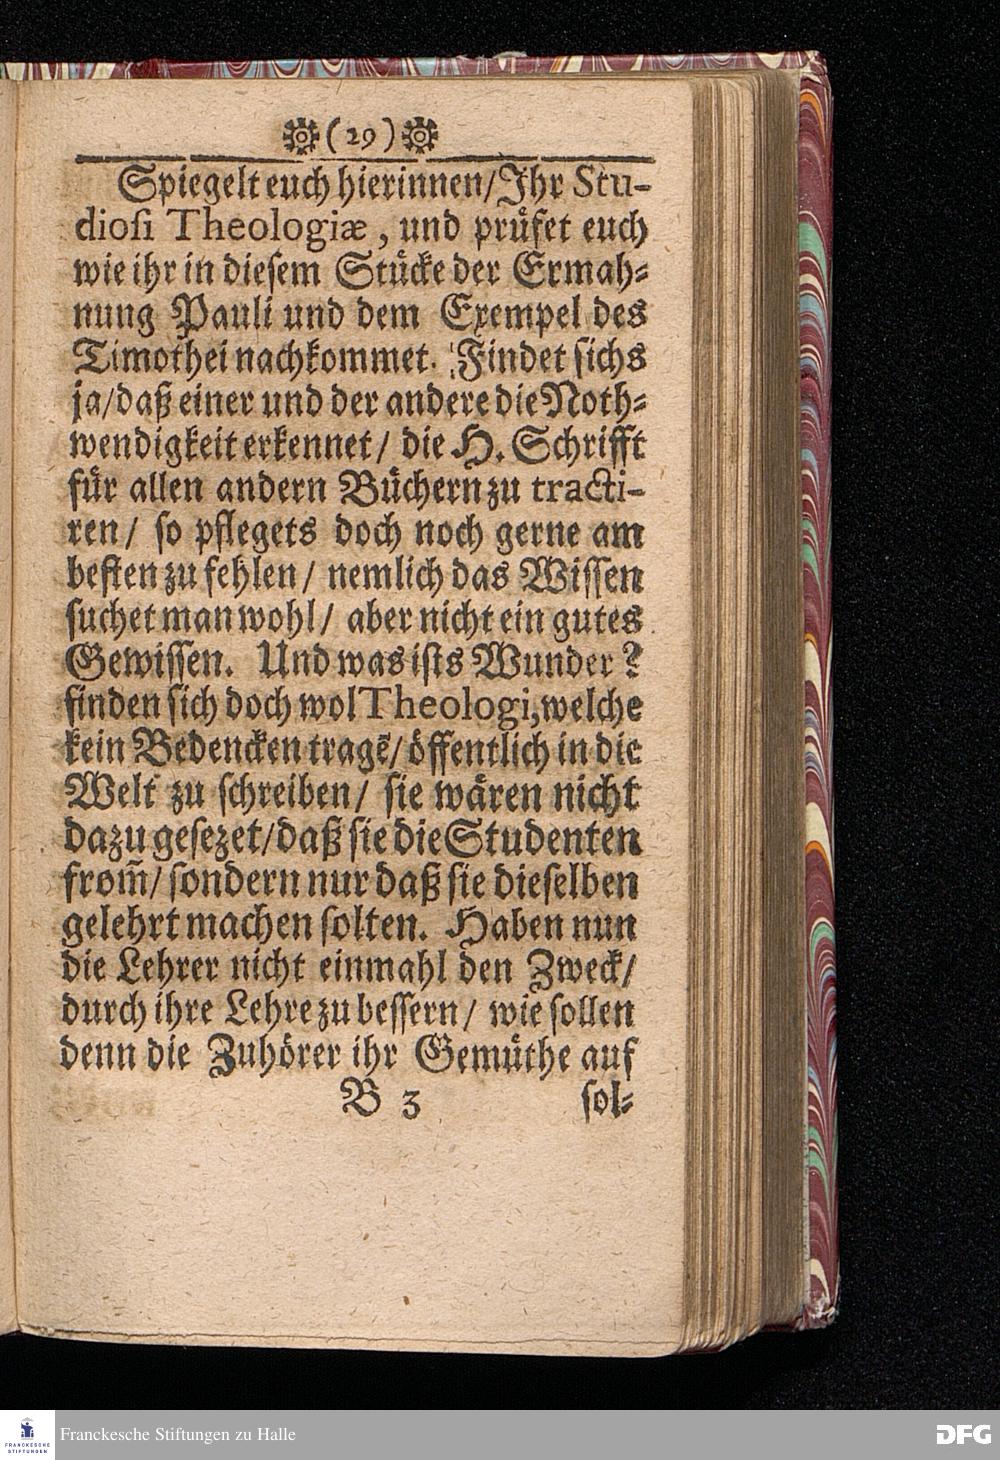 (29)
Spiegelt euch hierinnen/Ihr Stu-
diosi Theologiæ, und prüfet euch
wie ihr in diesem Stücke der Ermah-
nung Pauli und dem Exempel des
Timothei nachkommet. Findet sichs
ja/daß einer und der andere die Noth-
wendigkeit erkennet/ die H. Schrifft
für allen andern Büchern zu tracti-
ren/ so pflegets doch noch gerne am
besten zu fehlen/ nemlich das Wissen
suchet man wohl/ aber nicht ein gutes
Gewissen. Und was ists Wunder?
finden sich doch wol Theologi, welche
kein Bedencken tragē/öffentlich in die
Welt zu schreiben/ sie wären nicht
dazu gesezet/daß sie die Studenten
from̃/sondern nur daß sie dieselben
gelehrt machen solten. Haben nun
die Lehrer nicht einmahl den Zweck/
durch ihre Lehre zu bessern/ wie sollen
denn die Zuhörer ihr Gemüthe auf
B 3 sol-
FRANCKESCHE STIFTUNGEN
Franckesche Stiftungen zu Halle
DFG